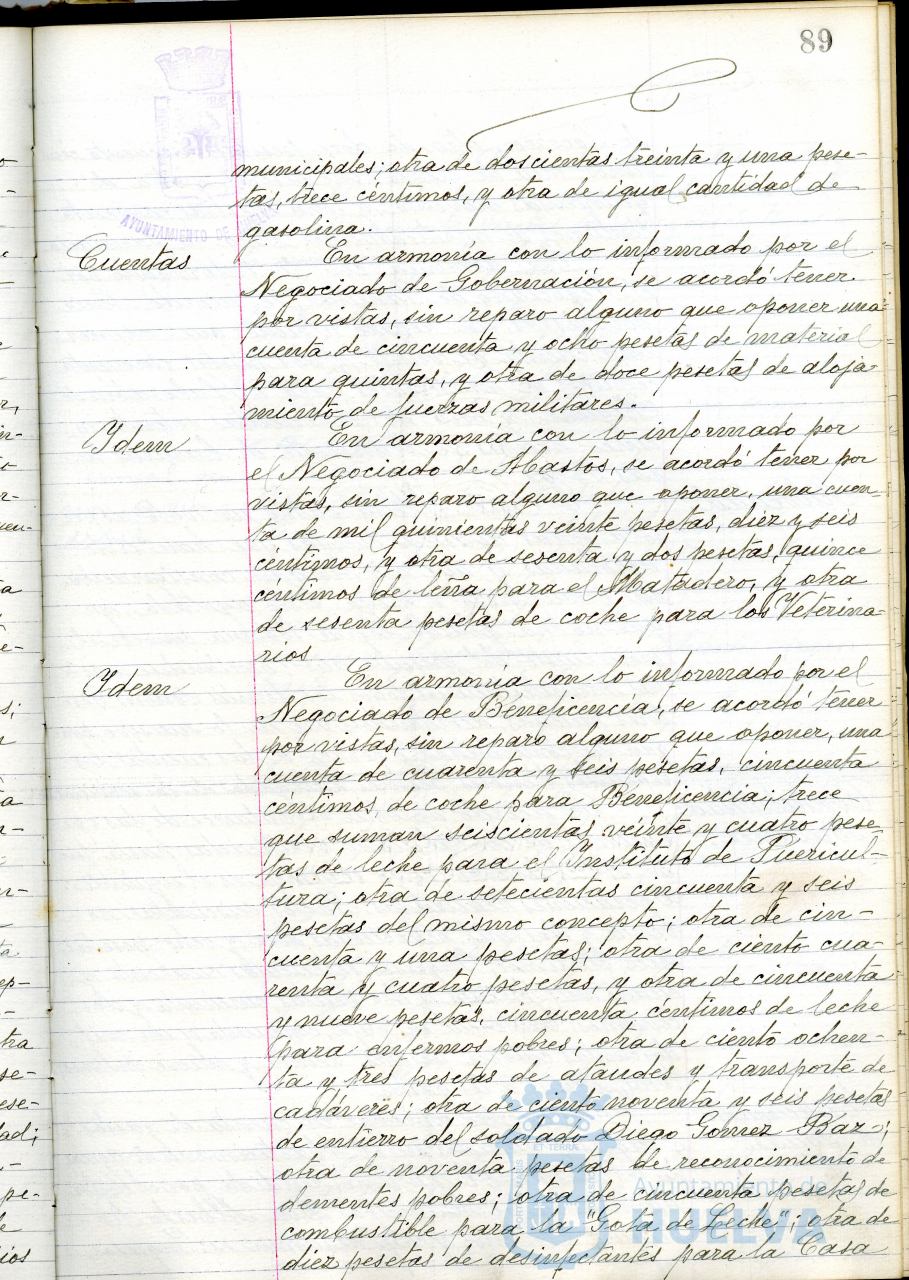 89
municipales; otra de doscientas treinta y una pese-
tas, trece céntimos, y otra de igual cantidad de
gasolina.
AYUNTAMIENTO DE HUELVA
Cuentas
En armonía con lo informado por el
Negociado de Gobernación, se acordó tener
por vistas, sin reparo alguno que oponer una
cuenta de cincuenta y ocho pesetas de material
para quintas, y otra de doce pesetas de aloja-
miento de fuerzas militares.
Idem
En armonía con lo informado por
el Negociado de Abastos, se acordó tener por
vistas, sin reparo alguno que oponer, una cuen-
ta de mil quinientas veinte pesetas, diez y seis
céntimos, y otra de sesenta y dos pesetas, quince
céntimos de leña para el Matadero, y otra
de sesenta pesetas de coche para los Veterina-
rios
Idem
En armonía con lo informado por el
Negociado de Beneficencia, se acordó tener
por vistas, sin reparo alguno que oponer, una
cuenta de cuarenta y seis pesetas, cincuenta
céntimos, de coche para Beneficencia; trece
que suman seiscientas veinte y cuatro pese-
tas de leche para el Instituto de Puericul-
tura; otra de setecientas cincuenta y seis
pesetas del mismo concepto; otra de cin-
cuenta y una pesetas; otra de ciento cua-
renta y cuatro pesetas, y otra de cincuenta
y nueve pesetas, cincuenta céntimos de leche
para enfermos pobres; otra de ciento ochen-
ta y tres pesetas de ataudes y transporte de
cadáveres; otra de ciento noventa y seis pesetas
de entierro del soldado Diego Gómez Baz;
otra de noventa pesetas de reconocimiento de
dementes pobres; otra de cincuenta pesetas de
combustible para la "Gota de Leche"; otra de
diez pesetas de desinfectantes para la Casa
Ayuntamiento de
HUELVA